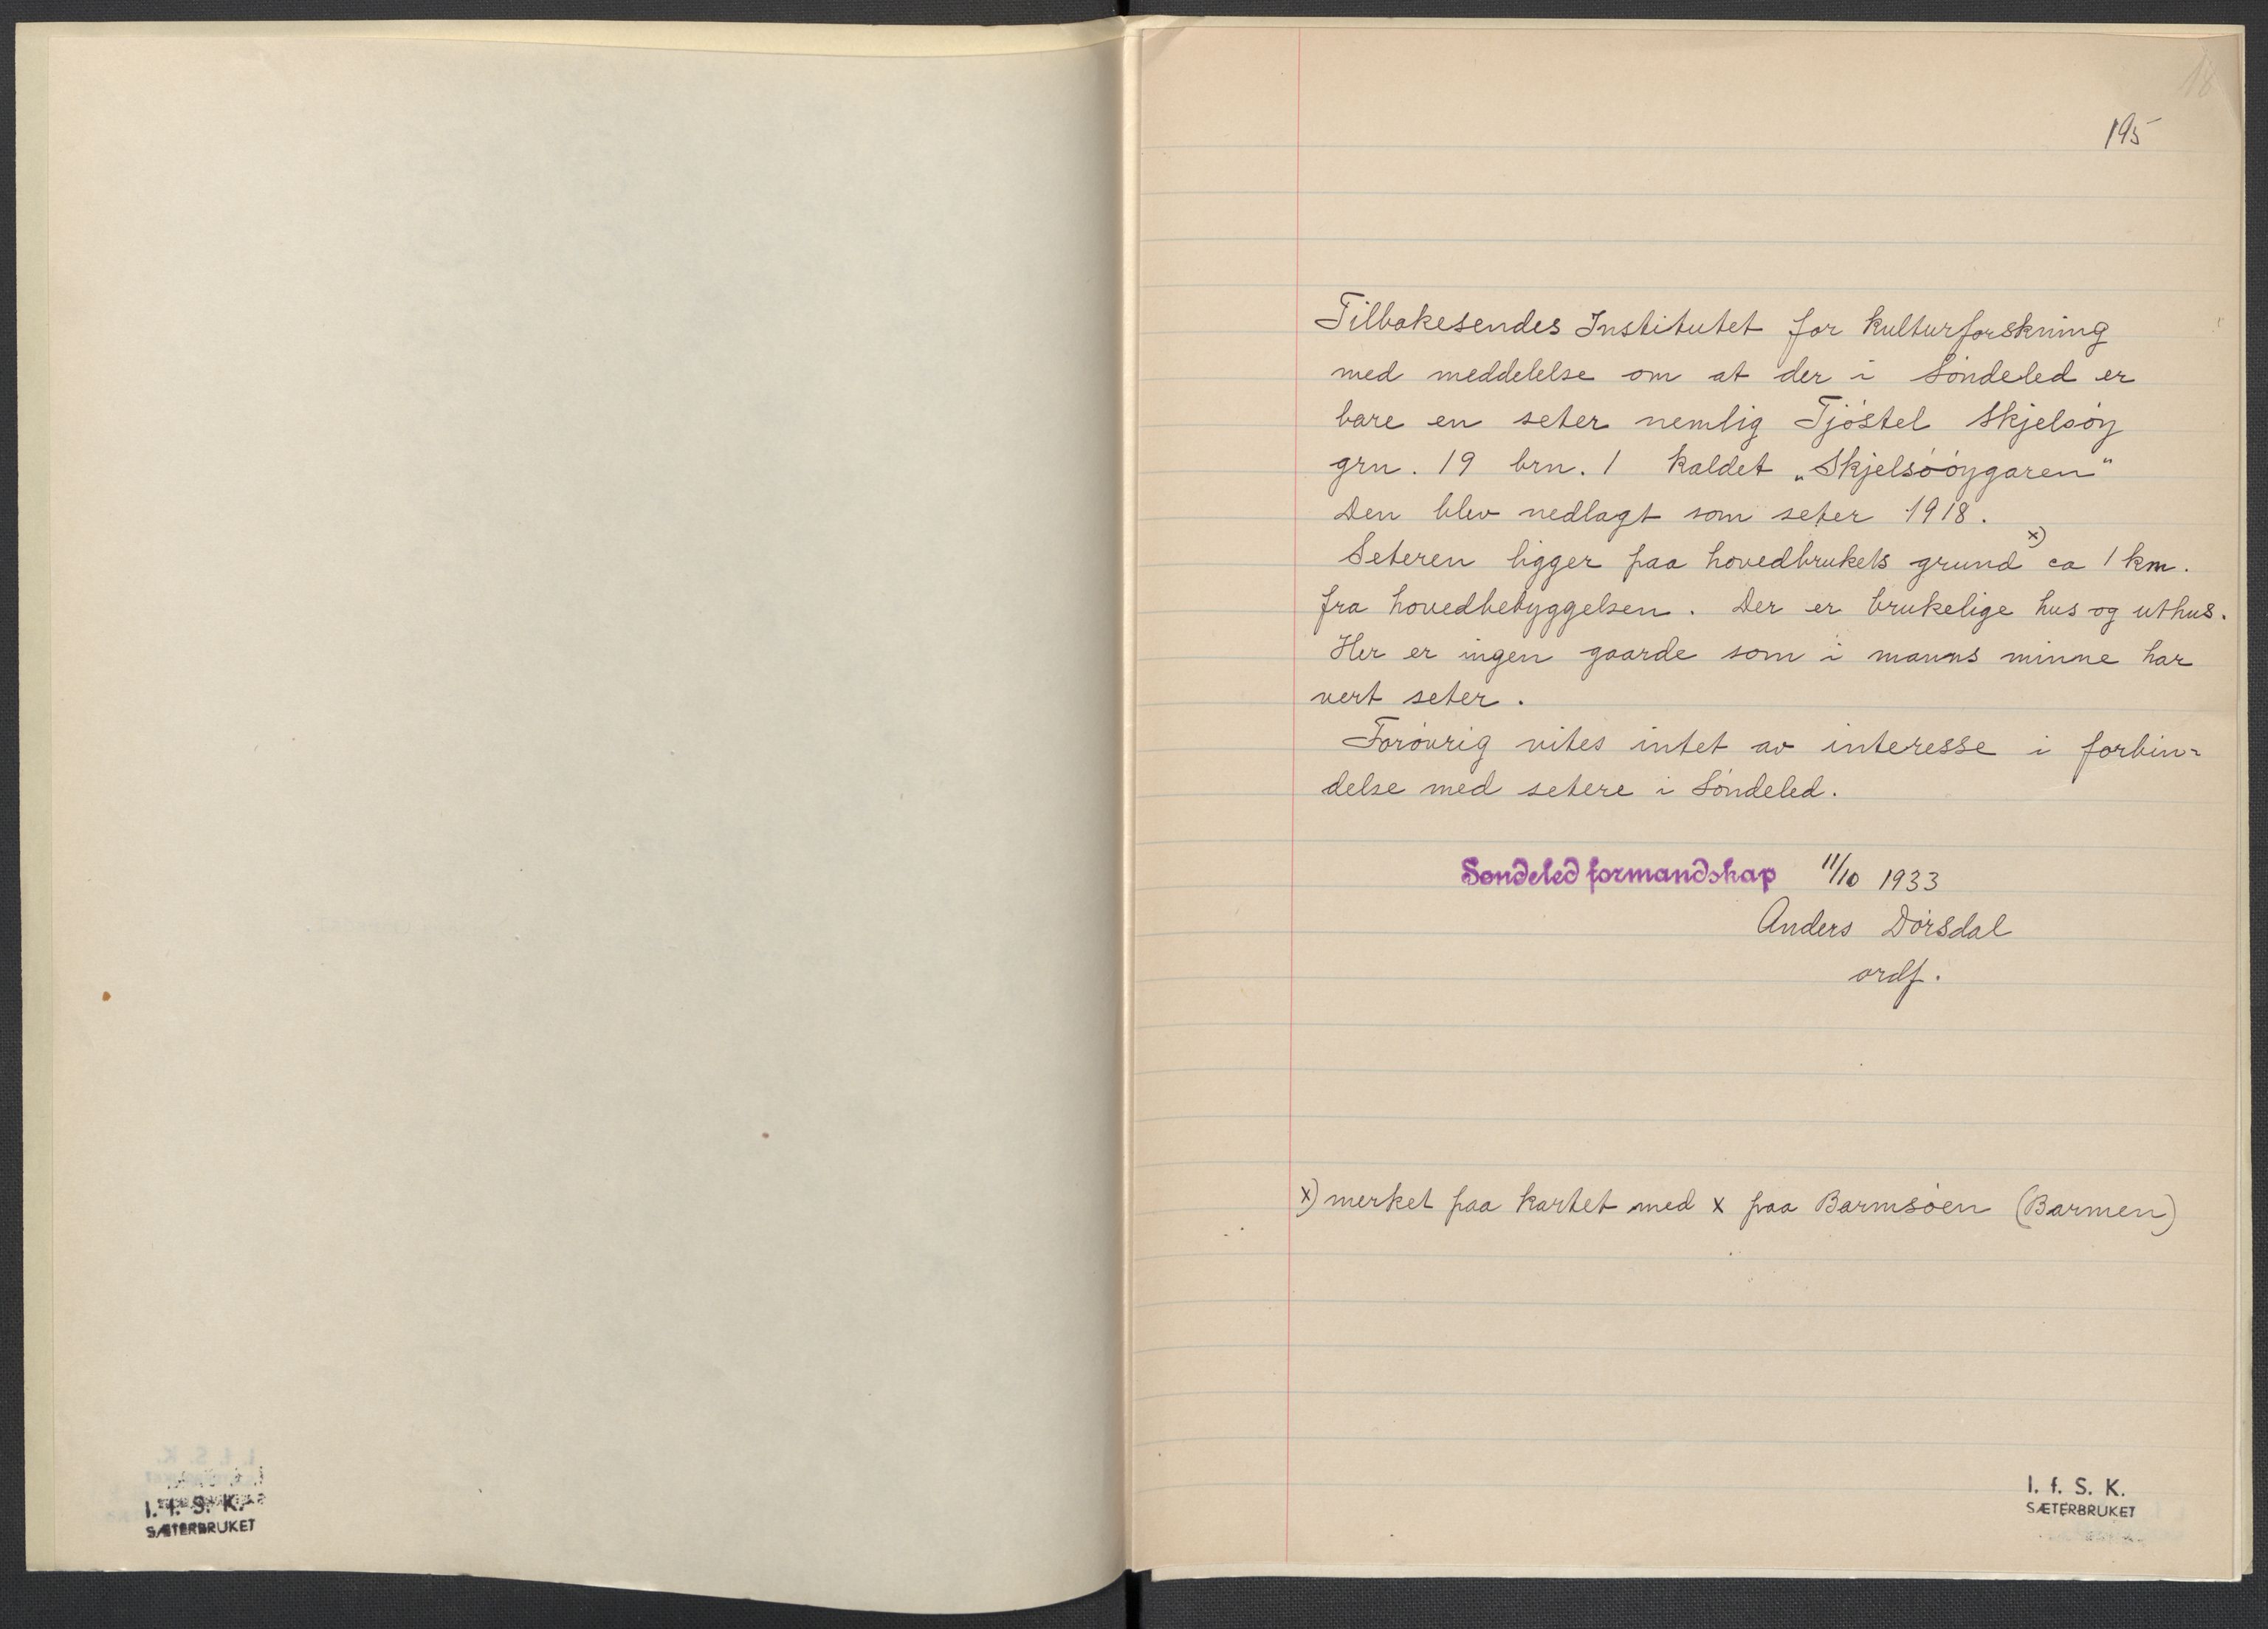 18
195
Tilbakesendes Institutet for kulturforskning
med meddelelse om at der i Søndeled er
bare en seter nemlig Tjøstel Skjelsøy
grn. 19 brn. 1 kaldet „Skjelsøøygaren"
Den blev nedlagt som seter 1918.
Seteren ligger paa hovedbrukets grund x) ca 1 km.
fra hovedbebyggelsen. Der er brukelige hus og uthus.
Her er ingen gaarde som i manns minne har
vert seter.
Forøvrig vites intet av interesse i forbin-
delse med setere i Søndeled.
Søndeled formandskap 11/10 1933
Anders Dørsdal
ordf.
x) merket paa kartet med x paa Barmsøen (Barmen)
I. f. S. K.
SÆTERBRUKET
I. f. S. K.
SÆTERBRUKET